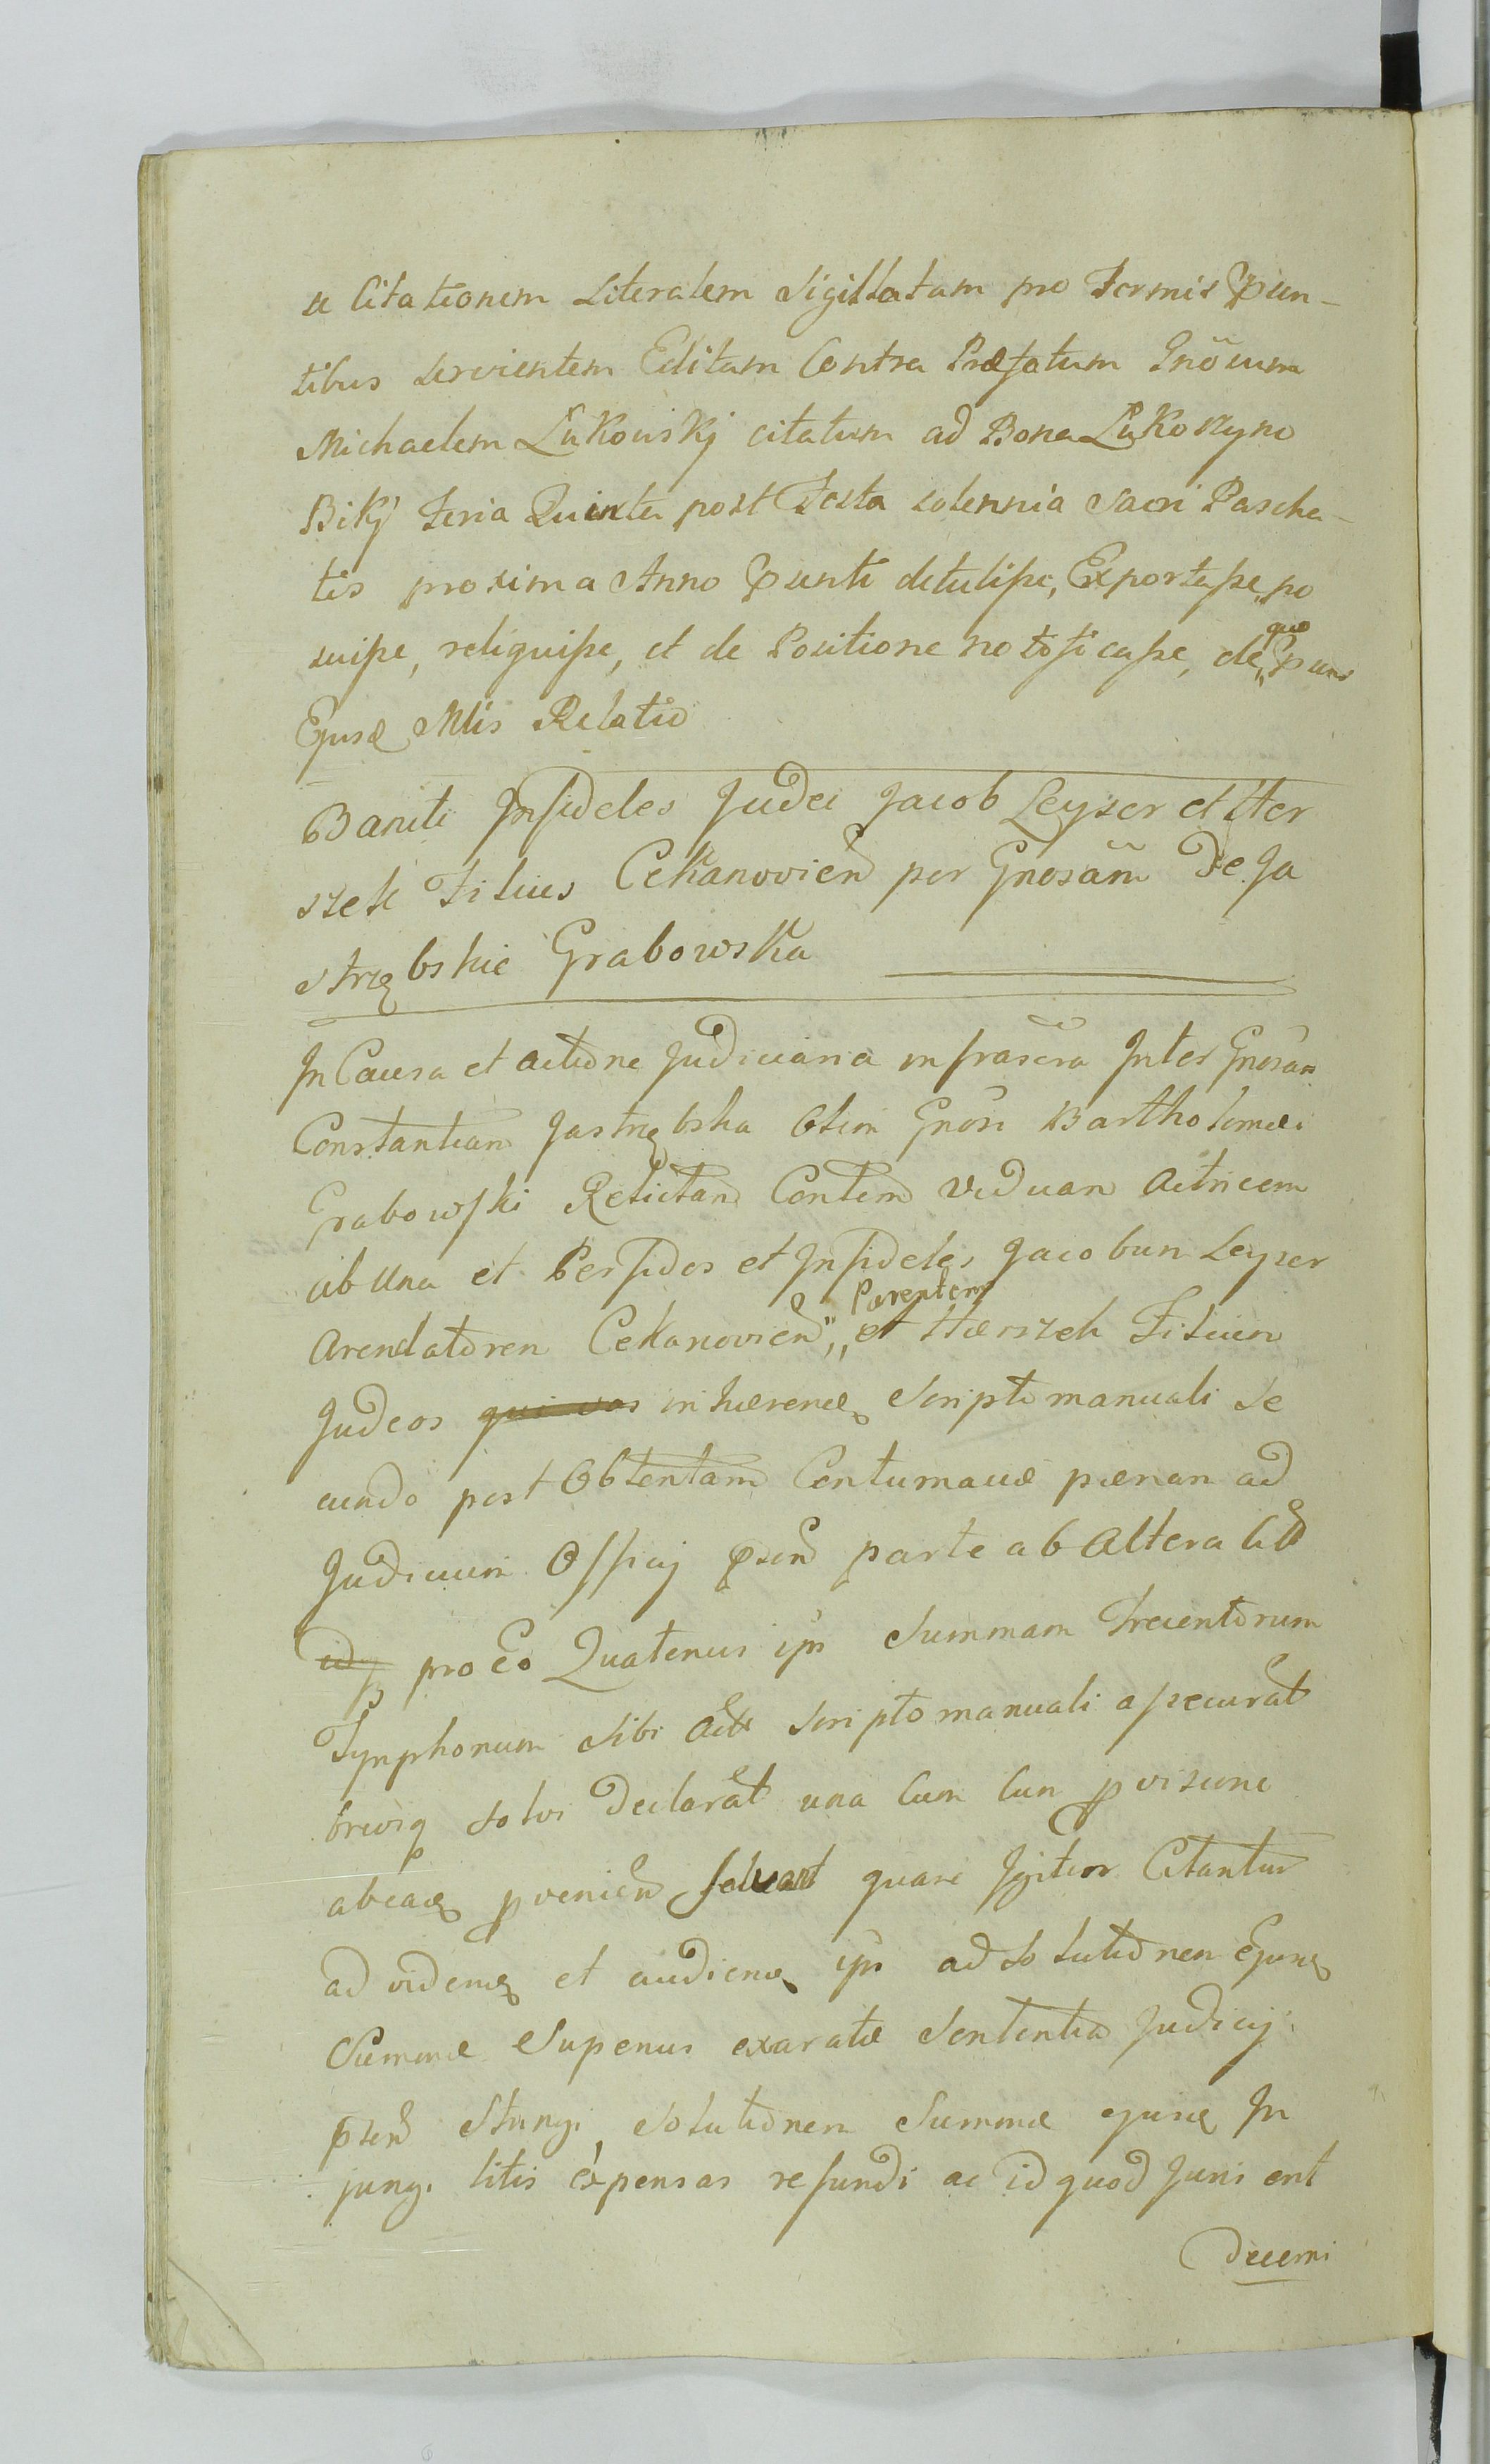 se Citationem Literalem Sigillatam pro Termis Pun-
tibus servientem Editam Contra Præfatum Gnõsum
Michaelem Łukowskj citatum ad Bona Łukoszyno
Bikj Feria Quinta post Festa solennia Sacri Pascha-
tis proxima Anno Punti detulisse, Exportasse, po
suisse, reliquisse, et de Positione notificasse, de qua Puns
Ejusd Mlis Relatio
Baniti Infideles Judei Jacob Leyzer et Her
szek Filius Cekanovien per Gnosam De Ja
strzębskie Grabowska
In Causa et actione Judiciaria infrascra Inter Gnosam
Constantiam Jastrzębska Olim Gnosi Bartholomei
Grabowski Relictam Contem Viduam Actricem
ab Una et Perfidos et Infideles Jacobum Leyzer
Arendatorem Cekanovien, Parentem et Herszek Filium
Judeos qui vos inhærend Scripto manuali Se
cundo post Obtentam Contumaciæ pænam ad
Judicium Officij psen parte ab Altera Citt
idq pro Eo Quatenus ipsi Summam Trecentorum
Tynphonum sibi Act Scripto manuali assecurat
brevig solvi declarat una cum cum provisione
ab eadq provenien solvant quare Igitur Citantur
ad videndq et audiendq ipsi ad Solutionem Ejusdq
Summæ Superius exaratæ Sententia Judicij
psen Stringi, Solutionem Summæ ejusdq In
jungi litis expensas refundi ac id quod Juris erit
Decerni